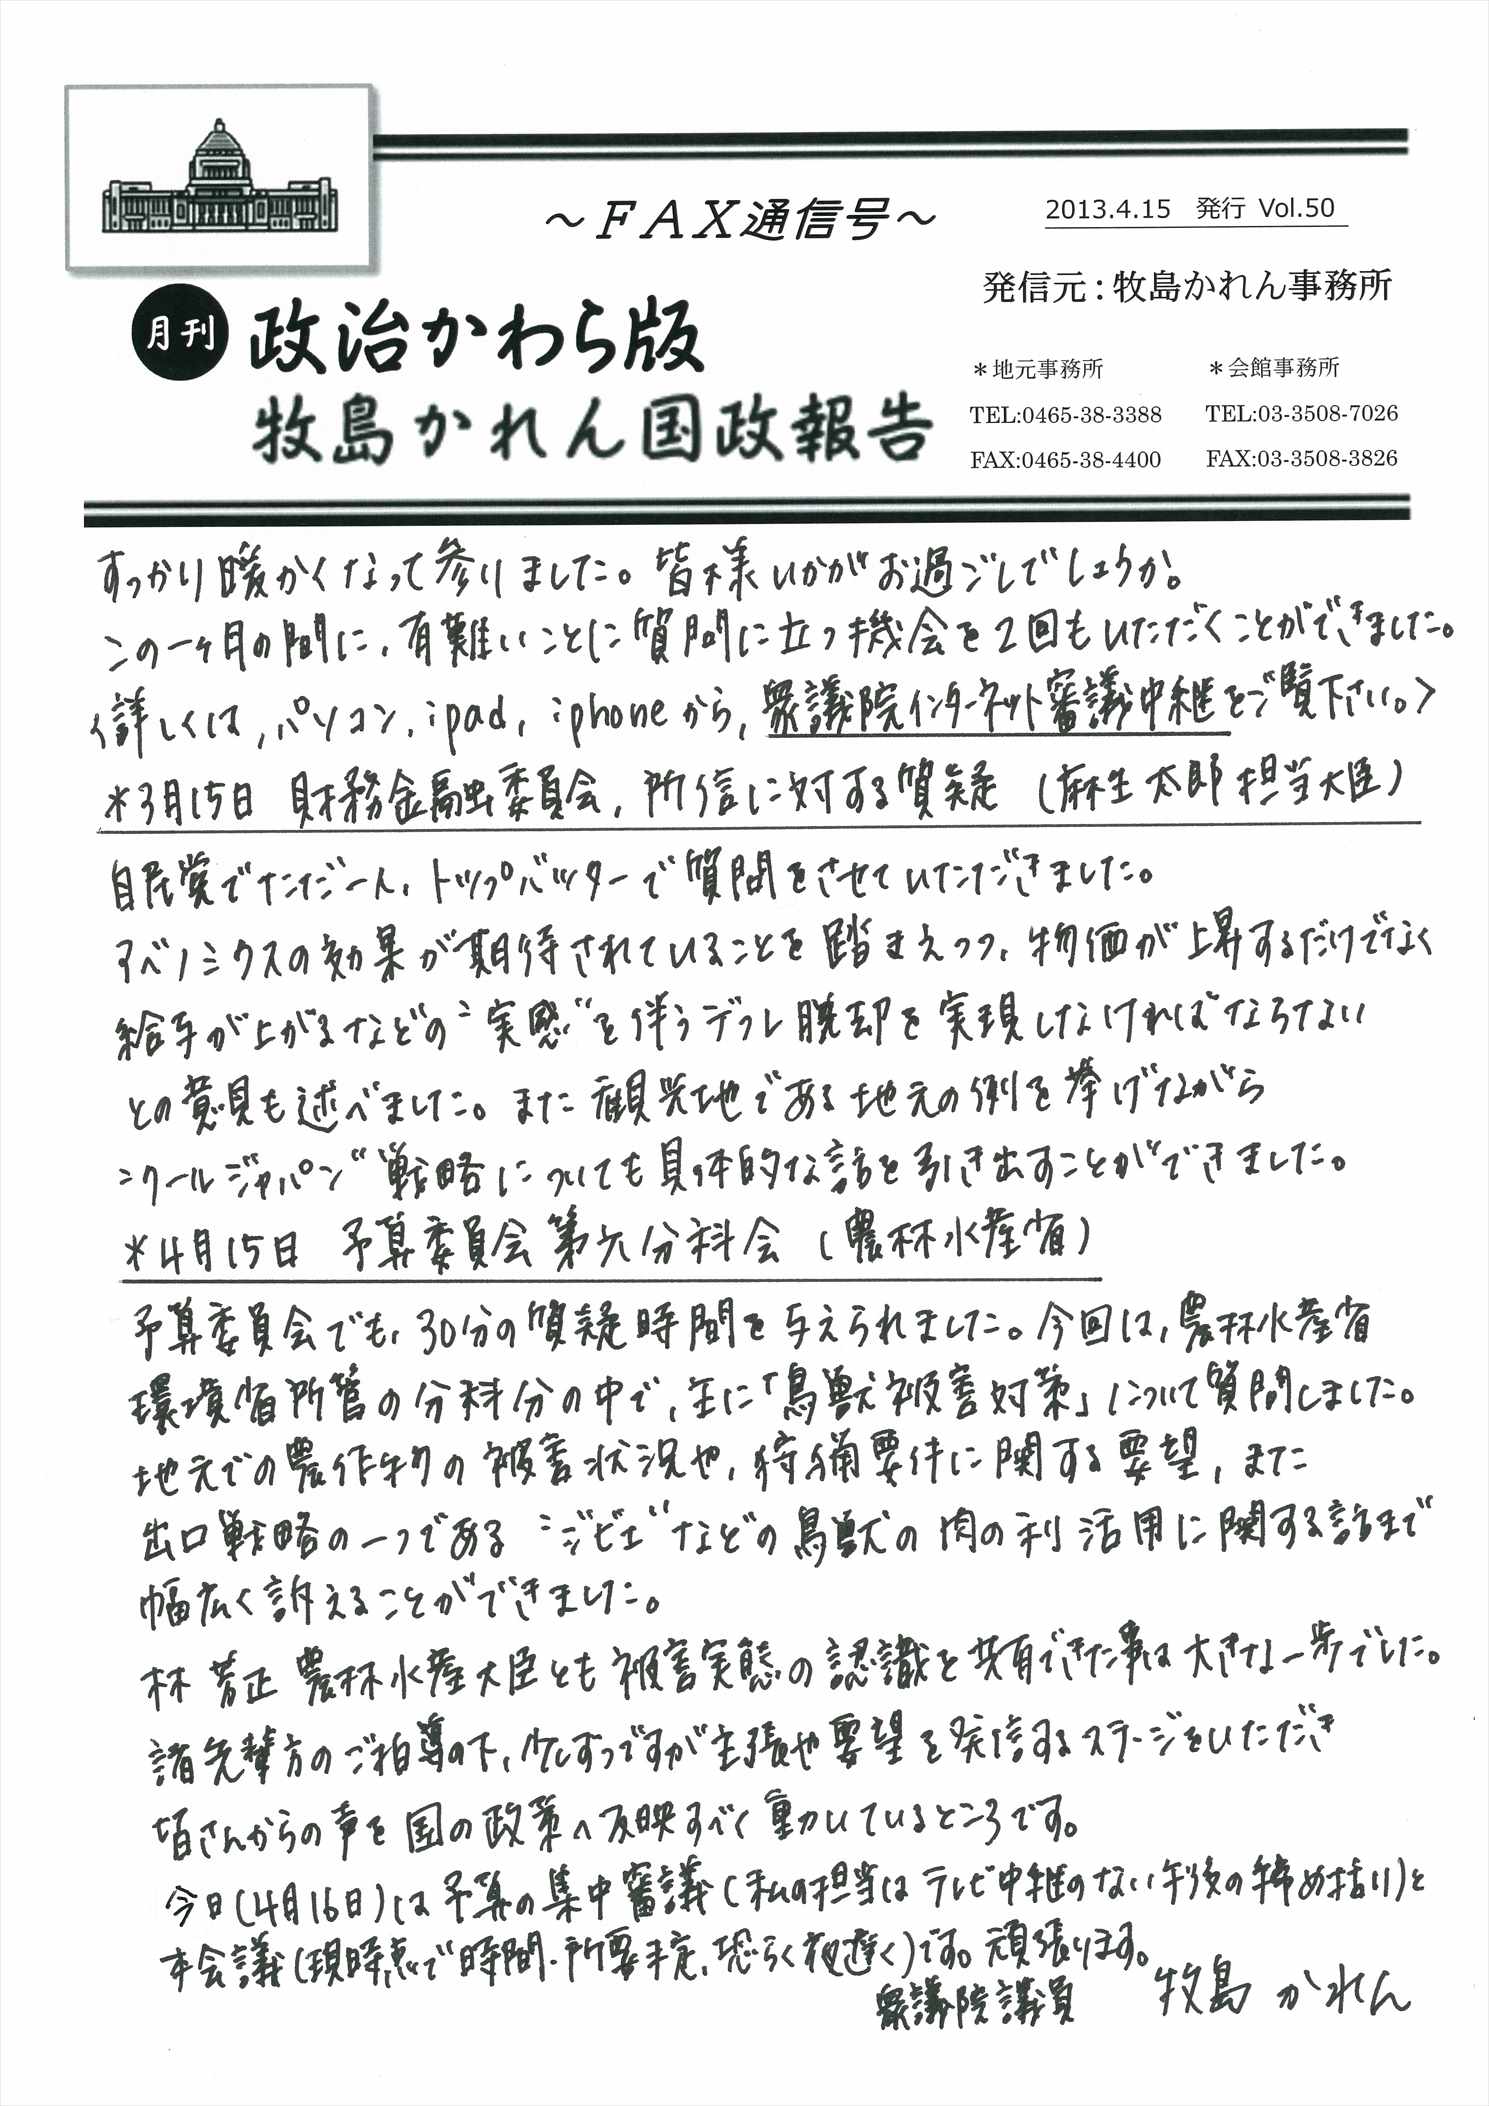 ～ＦＡＸ通信号～
2013.4.15 発行 Vol.50
発信元：牧島かれん事務所
月刊 政治かわら版
牧島かれん国政報告
＊地元事務所
TEL:0465-38-3388
FAX:0465-38-4400
＊会館事務所
TEL:03-3508-7026
FAX:03-3508-3826
すっかり暖かくなって参りました。皆様いかがお過ごしでしょうか。
この一ヶ月の間に、有難いことに質問に立つ機会を2回もいただくことができました。
〈詳しくは、パソコン、ipad、iphoneから、衆議院インターネット審議中継をご覧下さい。〉
＊3月15日 財務金融委員会、所信に対する質疑（麻生太郎担当大臣）
自民党でただ一人、トップバッターで質問をさせていただきました。
アベノミクスの効果が期待されていることを踏まえつつ、物価が上昇するだけでなく
給与が上がるなどの〝実感〟を伴うデフレ脱却を実現しなければならない
との意見も述べました。また観光地である地元の例を挙げながら
〝クールジャパン〟戦略についても具体的な話を引き出すことができました。
＊4月15日 予算委員会第六分科会（農林水産省）
予算委員会でも、30分の質疑時間を与えられました。今回は、農林水産省
環境省所管の分科分の中で、主に「鳥獣被害対策」について質問しました。
地元での農作物の被害状況や、狩猟要件に関する要望、また
出口戦略の一つである〝ジビエ〟などの鳥獣の肉の利活用に関する話まで
幅広く訴えることができました。
林芳正農林水産大臣とも被害実態の認識を共有できた事は大きな一歩でした。
諸先輩方のご指導の下、少しずつですが主張や要望を発信するステージをいただき
皆さんからの声を国の政策へ反映すべく動いているところです。
今日（4月16日）は予算の集中審議（私の担当はテレビ中継のない午後の締め括り）と
本会議（現時点で時間・所要未定、恐らく夜遅く）です。頑張ります。
衆議院議員 牧島かれん